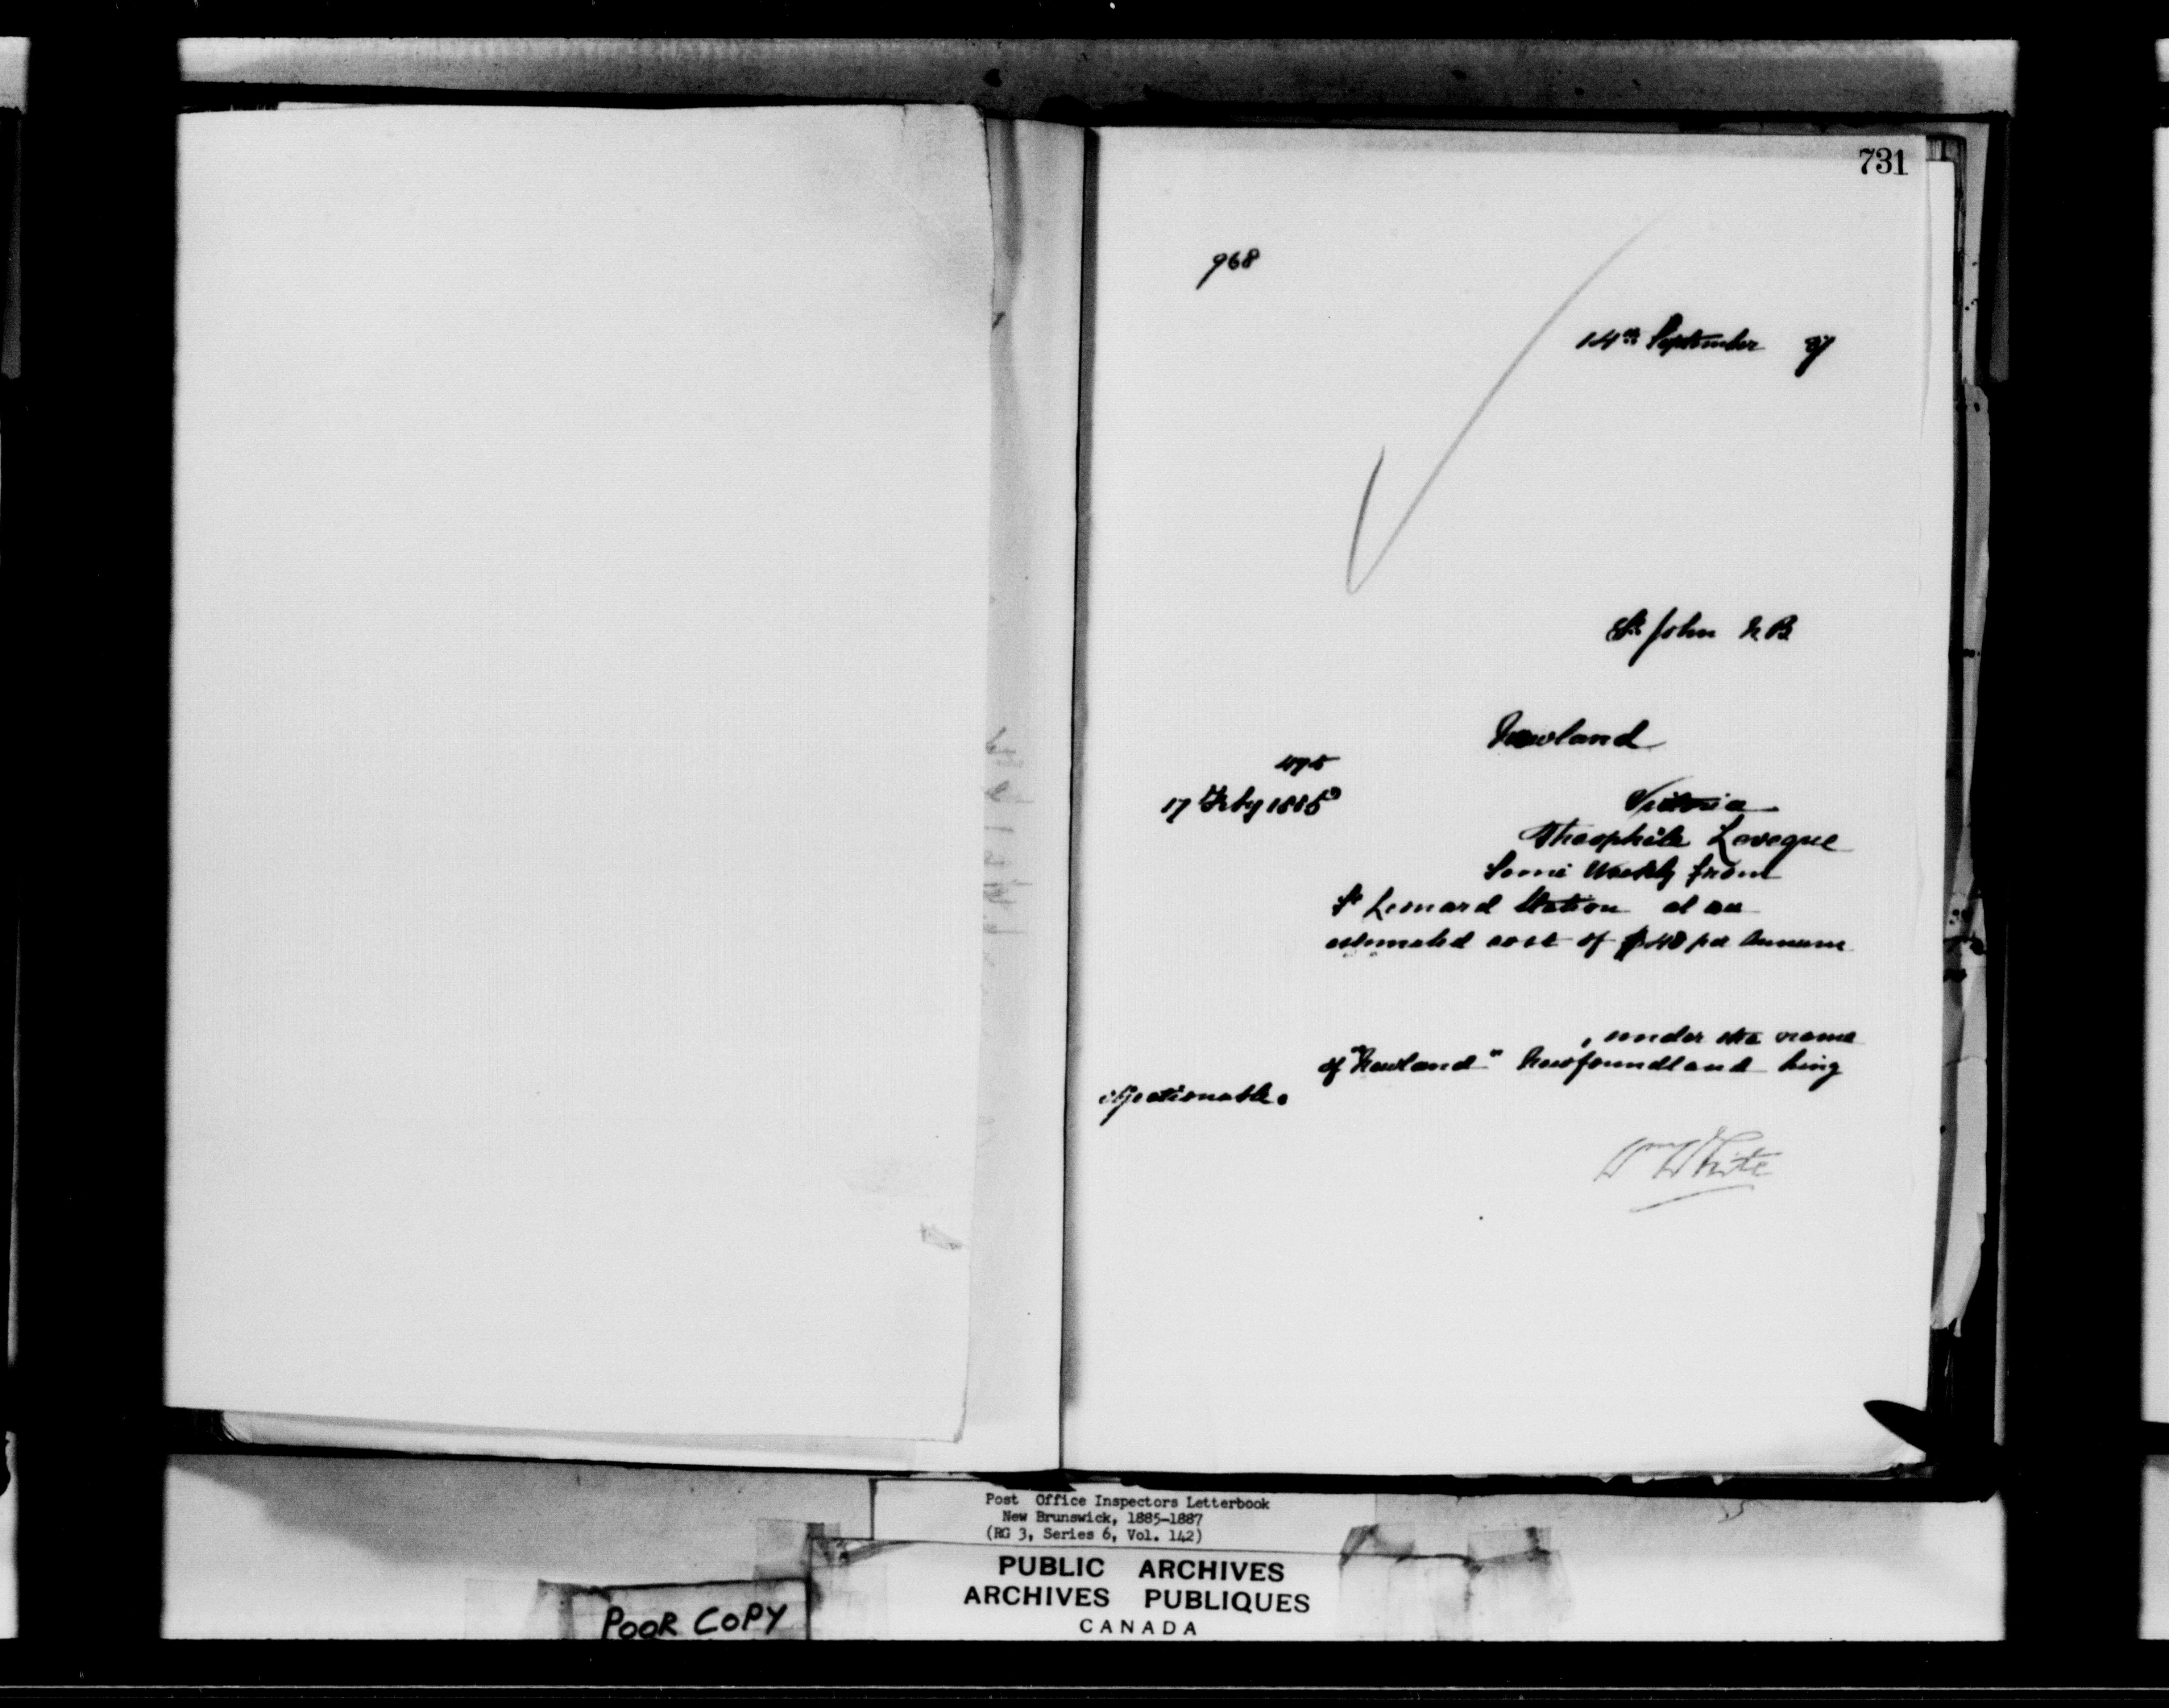 731
968
14th September 87
St John N B
Newland
495
17 Feby 1885
Victoria
Theophile Leveque
Semi Weekly from
St Leonard Station at an
estimated cost of $40 per annum
, under the name
of "Newland" Newfoundland being
objectionable.
Wm White
Post Office Inspectors Letterbook
New Brunswick, 1885-1887
(RG 3, Series 6, Vol. 142)
PUBLIC ARCHIVES
ARCHIVES PUBLIQUES
CANADA
POOR COPY